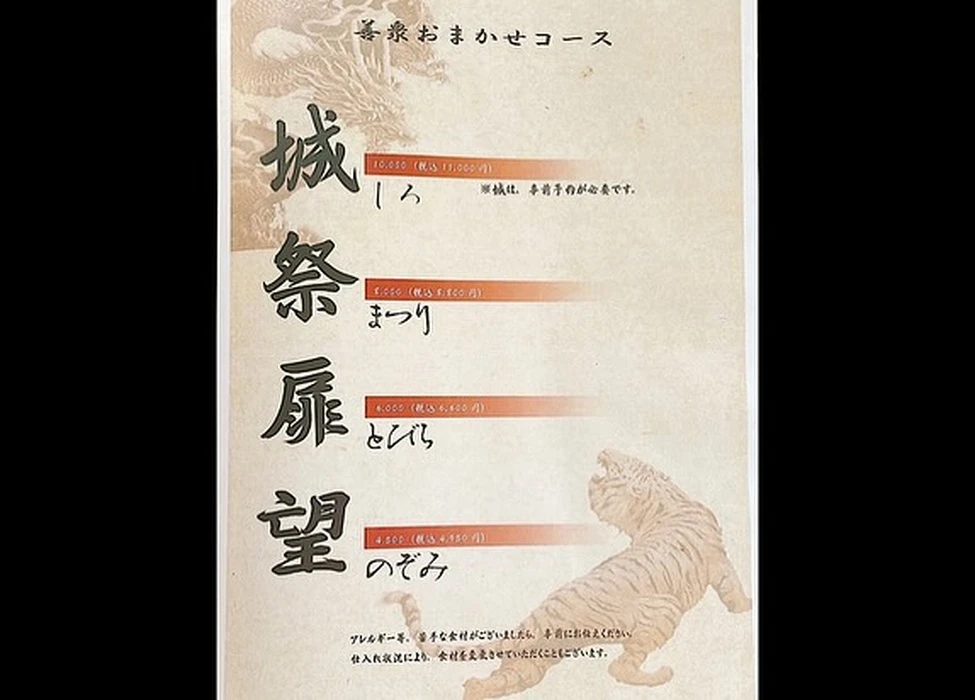 善衆おまかせコース
城
10,000 (税込 11,000円)
しろ
※城は、事前予約が必要です。
祭
8,000 (税込 8,800円)
まつり
扉
6,000 (税込 6,600円)
とびら
望
4,500 (税込 4,950円)
のぞみ
アレルギー等、苦手な食材がございましたら、事前にお伝えください。
仕入れ状況により、食材を変更させていただくこともございます。